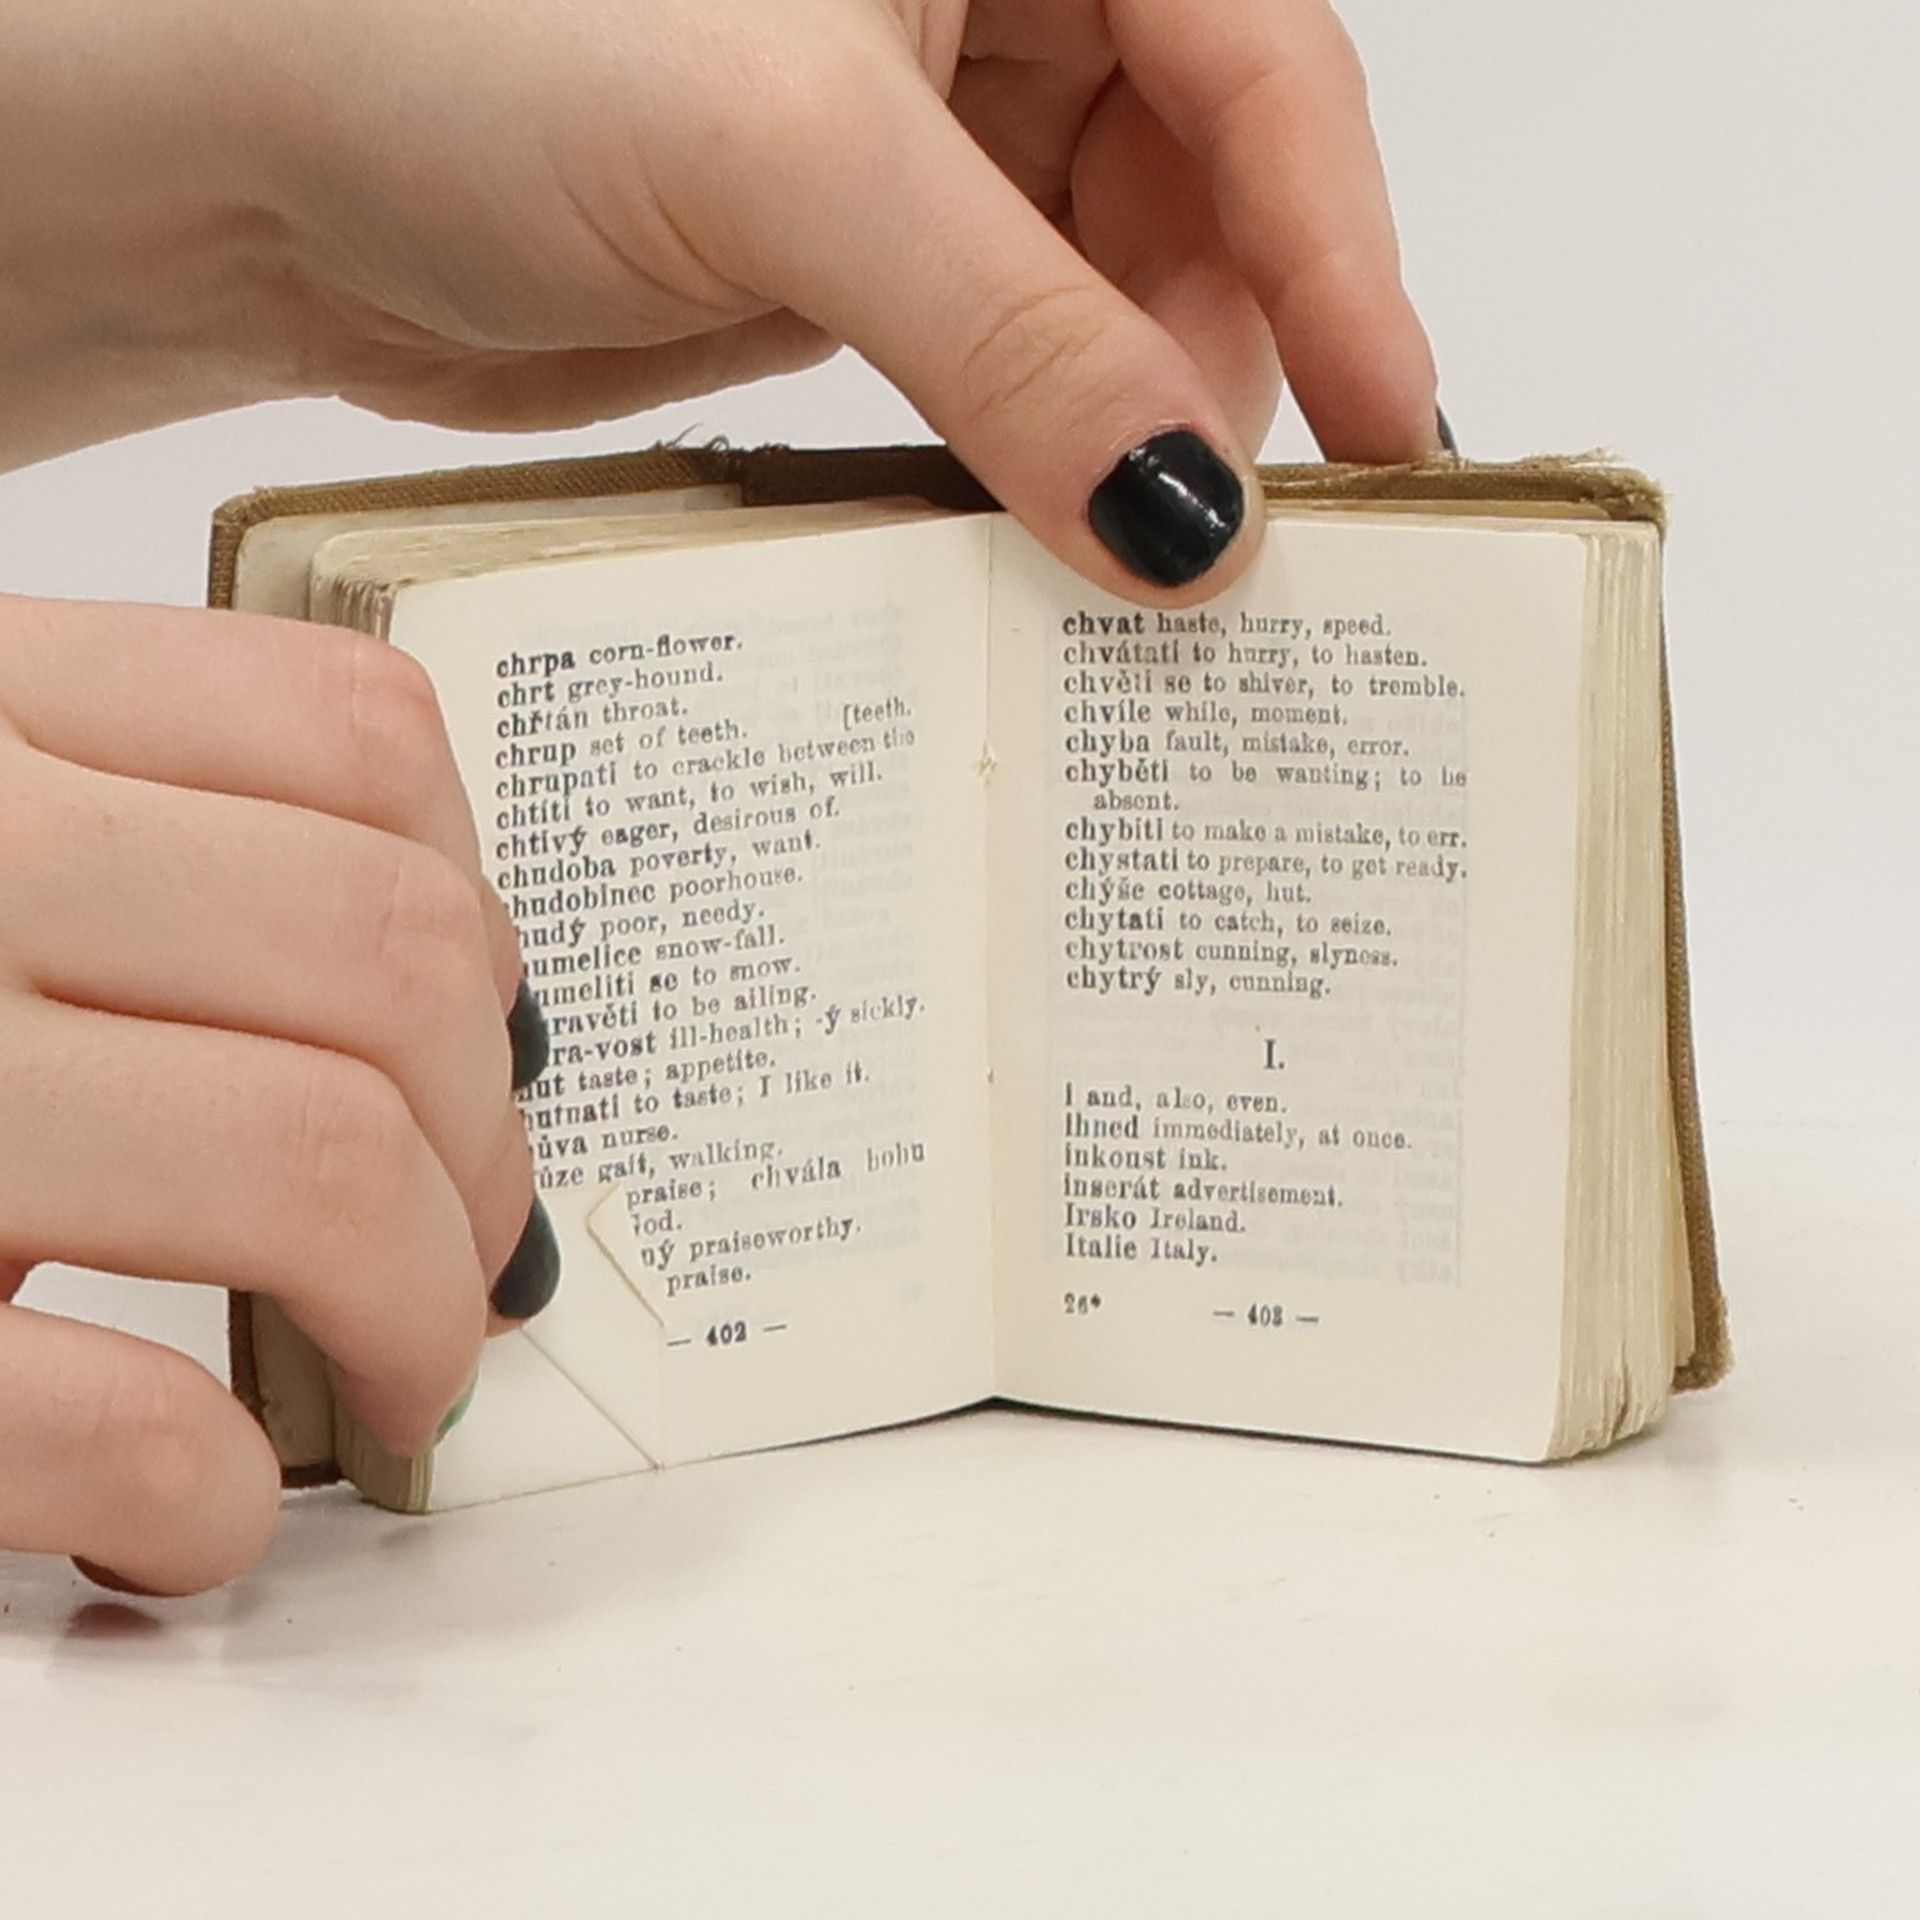 chrpa corn-flower.
chrt grey-hound.
chřtán throat.
chrup set of teeth. [teeth.
chrupati to crackle between the
chtíti to want, to wish, will.
chtivý eager, desirous of.
chudoba poverty, want.
hudobinec poorhouse.
hudý poor, needy.
umelice snow-fall.
umeliti se to snow.
ravěti to be ailing.
ra-vost ill-health; -ý sickly.
ut taste; appetite.
utnati to taste; I like it.
ůva nurse.
ůze gait, walking.
praise; chvála bohu
od.
ný praiseworthy.
praise.
— 402 —
chvat haste, hurry, speed.
chvátati to hurry, to hasten.
chvěti se to shiver, to tremble.
chvíle while, moment.
chyba fault, mistake, error.
chyběti to be wanting; to be
absent.
chybiti to make a mistake, to err.
chystati to prepare, to get ready.
chýše cottage, hut.
chytati to catch, to seize.
chytrost cunning, slyness.
chytrý sly, cunning.
I.
i and, also, even.
ihned immediately, at once.
inkoust ink.
inserát advertisement.
Irsko Ireland.
Italie Italy.
26* — 403 —